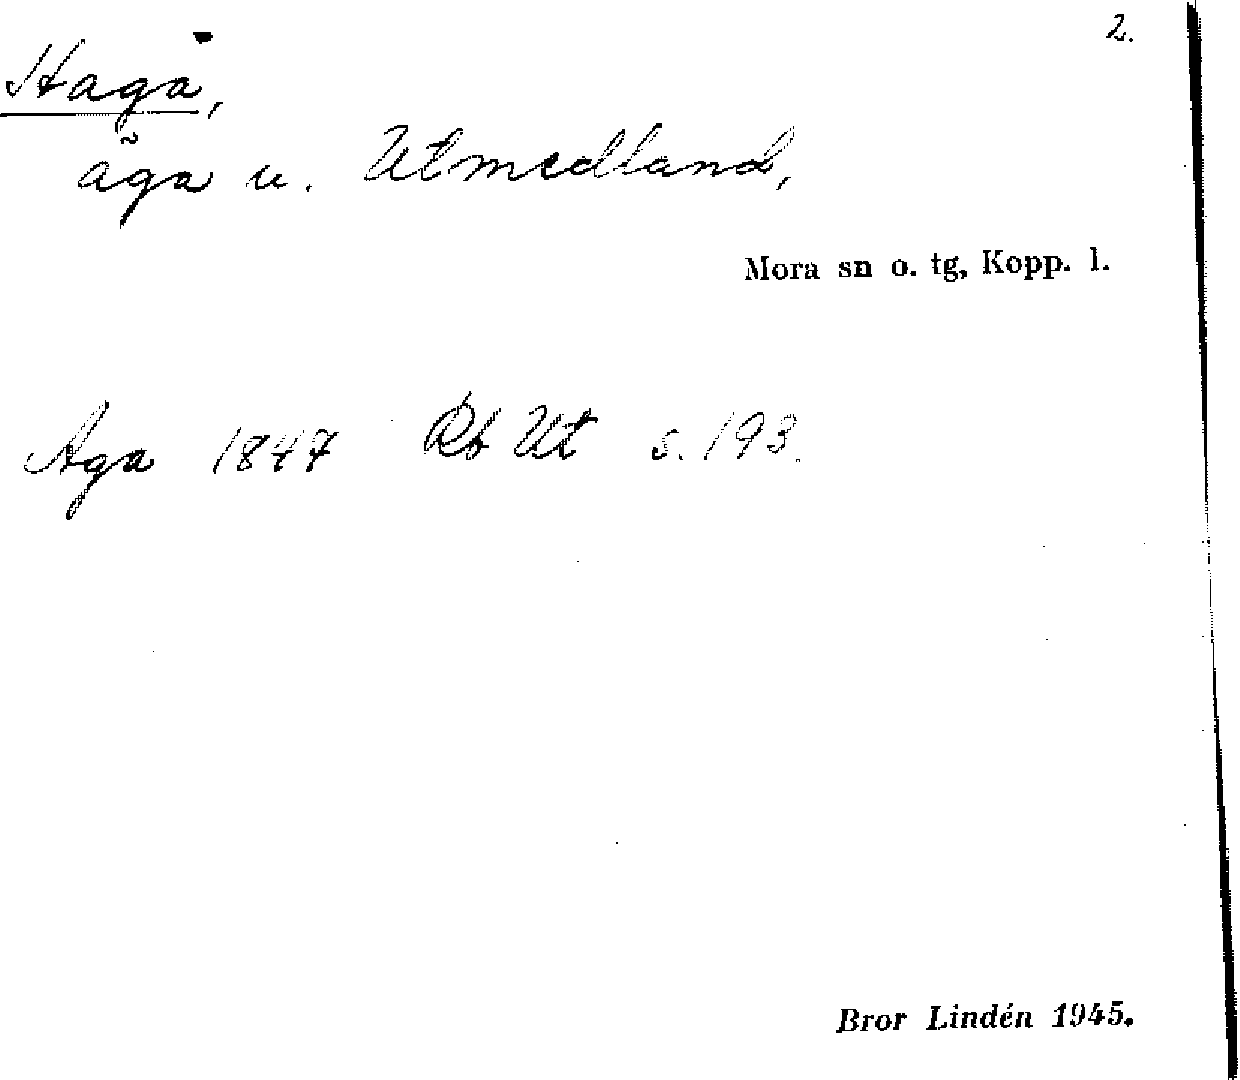 2.
Haga,
ãga u. Utmedland,
Mora sn o. tg, Kopp. l.
Aga 1847 Rb Ut s. 193.
Bror Lindén 1945.